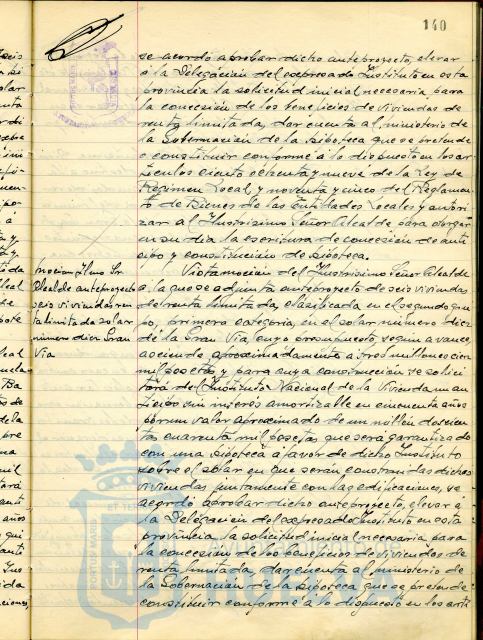 140
se acordó aprobar dicho anteproyecto, elevar
a la Delegación del expresado Instituto en esta
provincia la solicitud inicial necesaria para
la concesión de los beneficios de viviendas de
renta limitada, dar cuenta al ministerio de
la Gobernación de la hipoteca que se pretende
constituir conforme a lo dispuesto en los ar
tículos ciento ochenta y nueve de la Ley de
Régimen Local y noventa y cinco del Reglamen
to de Bienes de las Entidades Locales y autori
zar al Ilustrísimo Señor Alcalde para otorgar
en su día la escritura de concesión de anti
cipo y constitución de hipoteca.
Moción Ilmo Sr
Alcalde anteproyecto
seis viviendas ren
ta limitada solar
número diez Gran
Vía
Vista moción del Ilustrísimo Señor Alcalde
a la que se adjunta anteproyecto de seis viviendas
de renta limitada, clasificada en el segundo gru
po, primera categoría, en el solar número diez
de la Gran Vía, cuyo presupuesto, según avance,
asciende aproximadamente a tres millones cien
mil pesetas y para cuya construcción se solici
tará del Instituto Nacional de la Vivienda un an
ticipo sin interés amortizable en cincuenta años
por un valor aproximado de un millón doscien
tas cuarenta mil pesetas que será garantizado
con una hipoteca a favor de dicho Instituto
sobre el solar en que serán construidas dichas
viviendas juntamente con las edificaciones, se
acordó aprobar dicho anteproyecto, elevar a
la Delegación del expresado Instituto en esta
provincia la solicitud inicial necesaria para
la concesión de los beneficios de viviendas de
renta limitada, dar cuenta al ministerio de
la Gobernación de la hipoteca que se pretende
constituir conforme a lo dispuesto en los artí